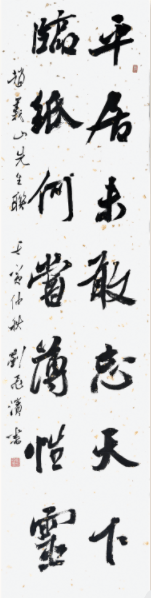 平居未敢忘天下
臨紙何嘗薄性靈
趙義山先生聯 壬寅仲秋 劉飛濱書